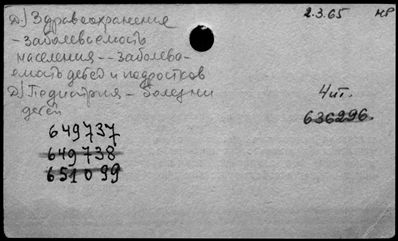 Д) Здравоохранение
2.3.65 нр
- Заболеваемость
населения -- Заболева-
емость детей и подростков
Д) Педиатрия - болезни
детей
4 чит.
636296
649737
649738
651099